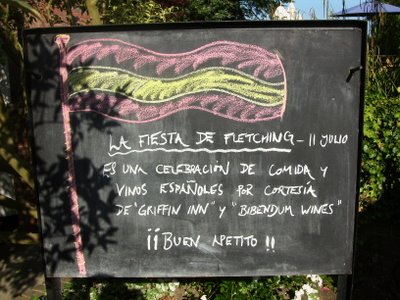 LA FIESTA DE FLETCHING - 11 JULIO
ES UNA CELEBRACION DE COMIDA Y
VINOS ESPAÑOLES POR CORTESÍA
DE "GRIFFIN INN" Y "BIBENDUM WINES"
¡¡ BUEN APETITO !!